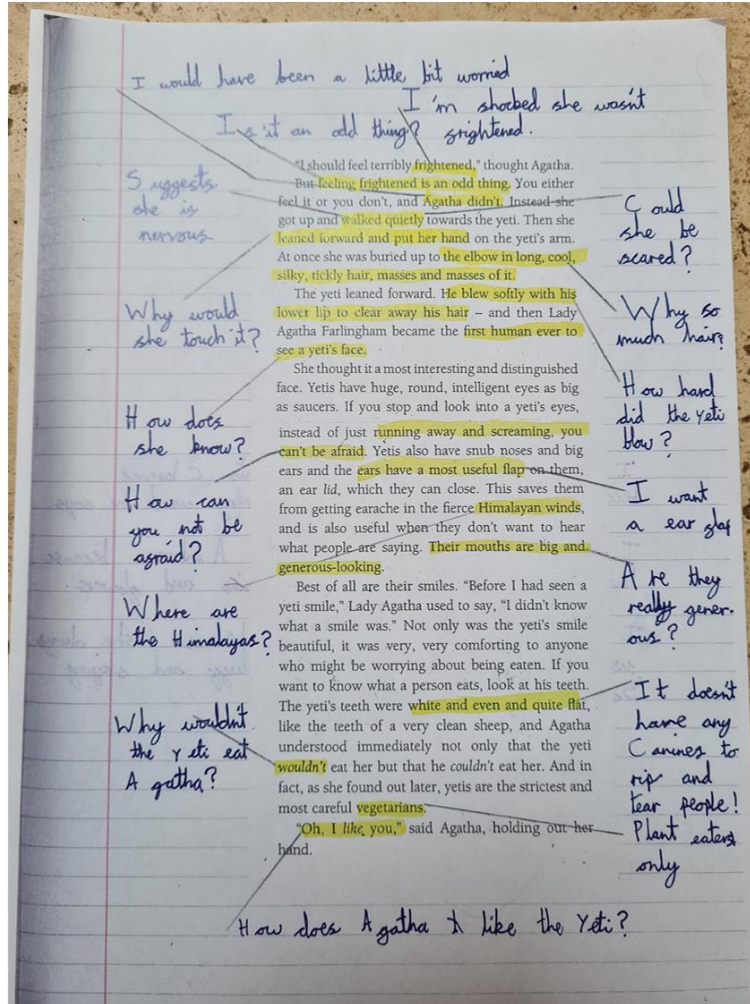 I would have been a little bit worried
I'm shocked she wasn't
frightened.
Is it an odd thing?
Suggests
she is
nervous
Why would
she touch it?
How does
she know?
How can
you not be
afraid?
Where are
the Himalayas?
Why wouldn't
the Yeti eat
Agatha?
"I should feel terribly frightened," thought Agatha.
But feeling frightened is an odd thing. You either
feel it or you don't, and Agatha didn't. Instead she
got up and walked quietly towards the yeti. Then she
leaned forward and put her hand on the yeti's arm.
At once she was buried up to the elbow in long, cool,
silky, tickly hair, masses and masses of it.
The yeti leaned forward. He blew softly with his
lower lip to clear away his hair – and then Lady
Agatha Farlingham became the first human ever to
see a yeti's face.
She thought it a most interesting and distinguished
face. Yetis have huge, round, intelligent eyes as big
as saucers. If you stop and look into a yeti's eyes,
instead of just running away and screaming, you
can't be afraid. Yetis also have snub noses and big
ears and the ears have a most useful flap on them,
an ear lid, which they can close. This saves them
from getting earache in the fierce Himalayan winds,
and is also useful when they don't want to hear
what people are saying. Their mouths are big and
generous-looking.
Best of all are their smiles. "Before I had seen a
yeti smile," Lady Agatha used to say, "I didn't know
what a smile was." Not only was the yeti's smile
beautiful, it was very, very comforting to anyone
who might be worrying about being eaten. If you
want to know what a person eats, look at his teeth.
The yeti's teeth were white and even and quite flat,
like the teeth of a very clean sheep, and Agatha
understood immediately not only that the yeti
wouldn't eat her but that he couldn't eat her. And in
fact, as she found out later, yetis are the strictest and
most careful vegetarians.
"Oh, I like you," said Agatha, holding out her
hand.
Could
she be
scared?
Why so
much hair?
How hard
did the Yeti
blow?
I want
a ear flap
Are they
really gener-
ous?
It doesn't
have any
Canines to
rip and
tear people!
Plant eaters
only
How does Agatha like the Yeti?